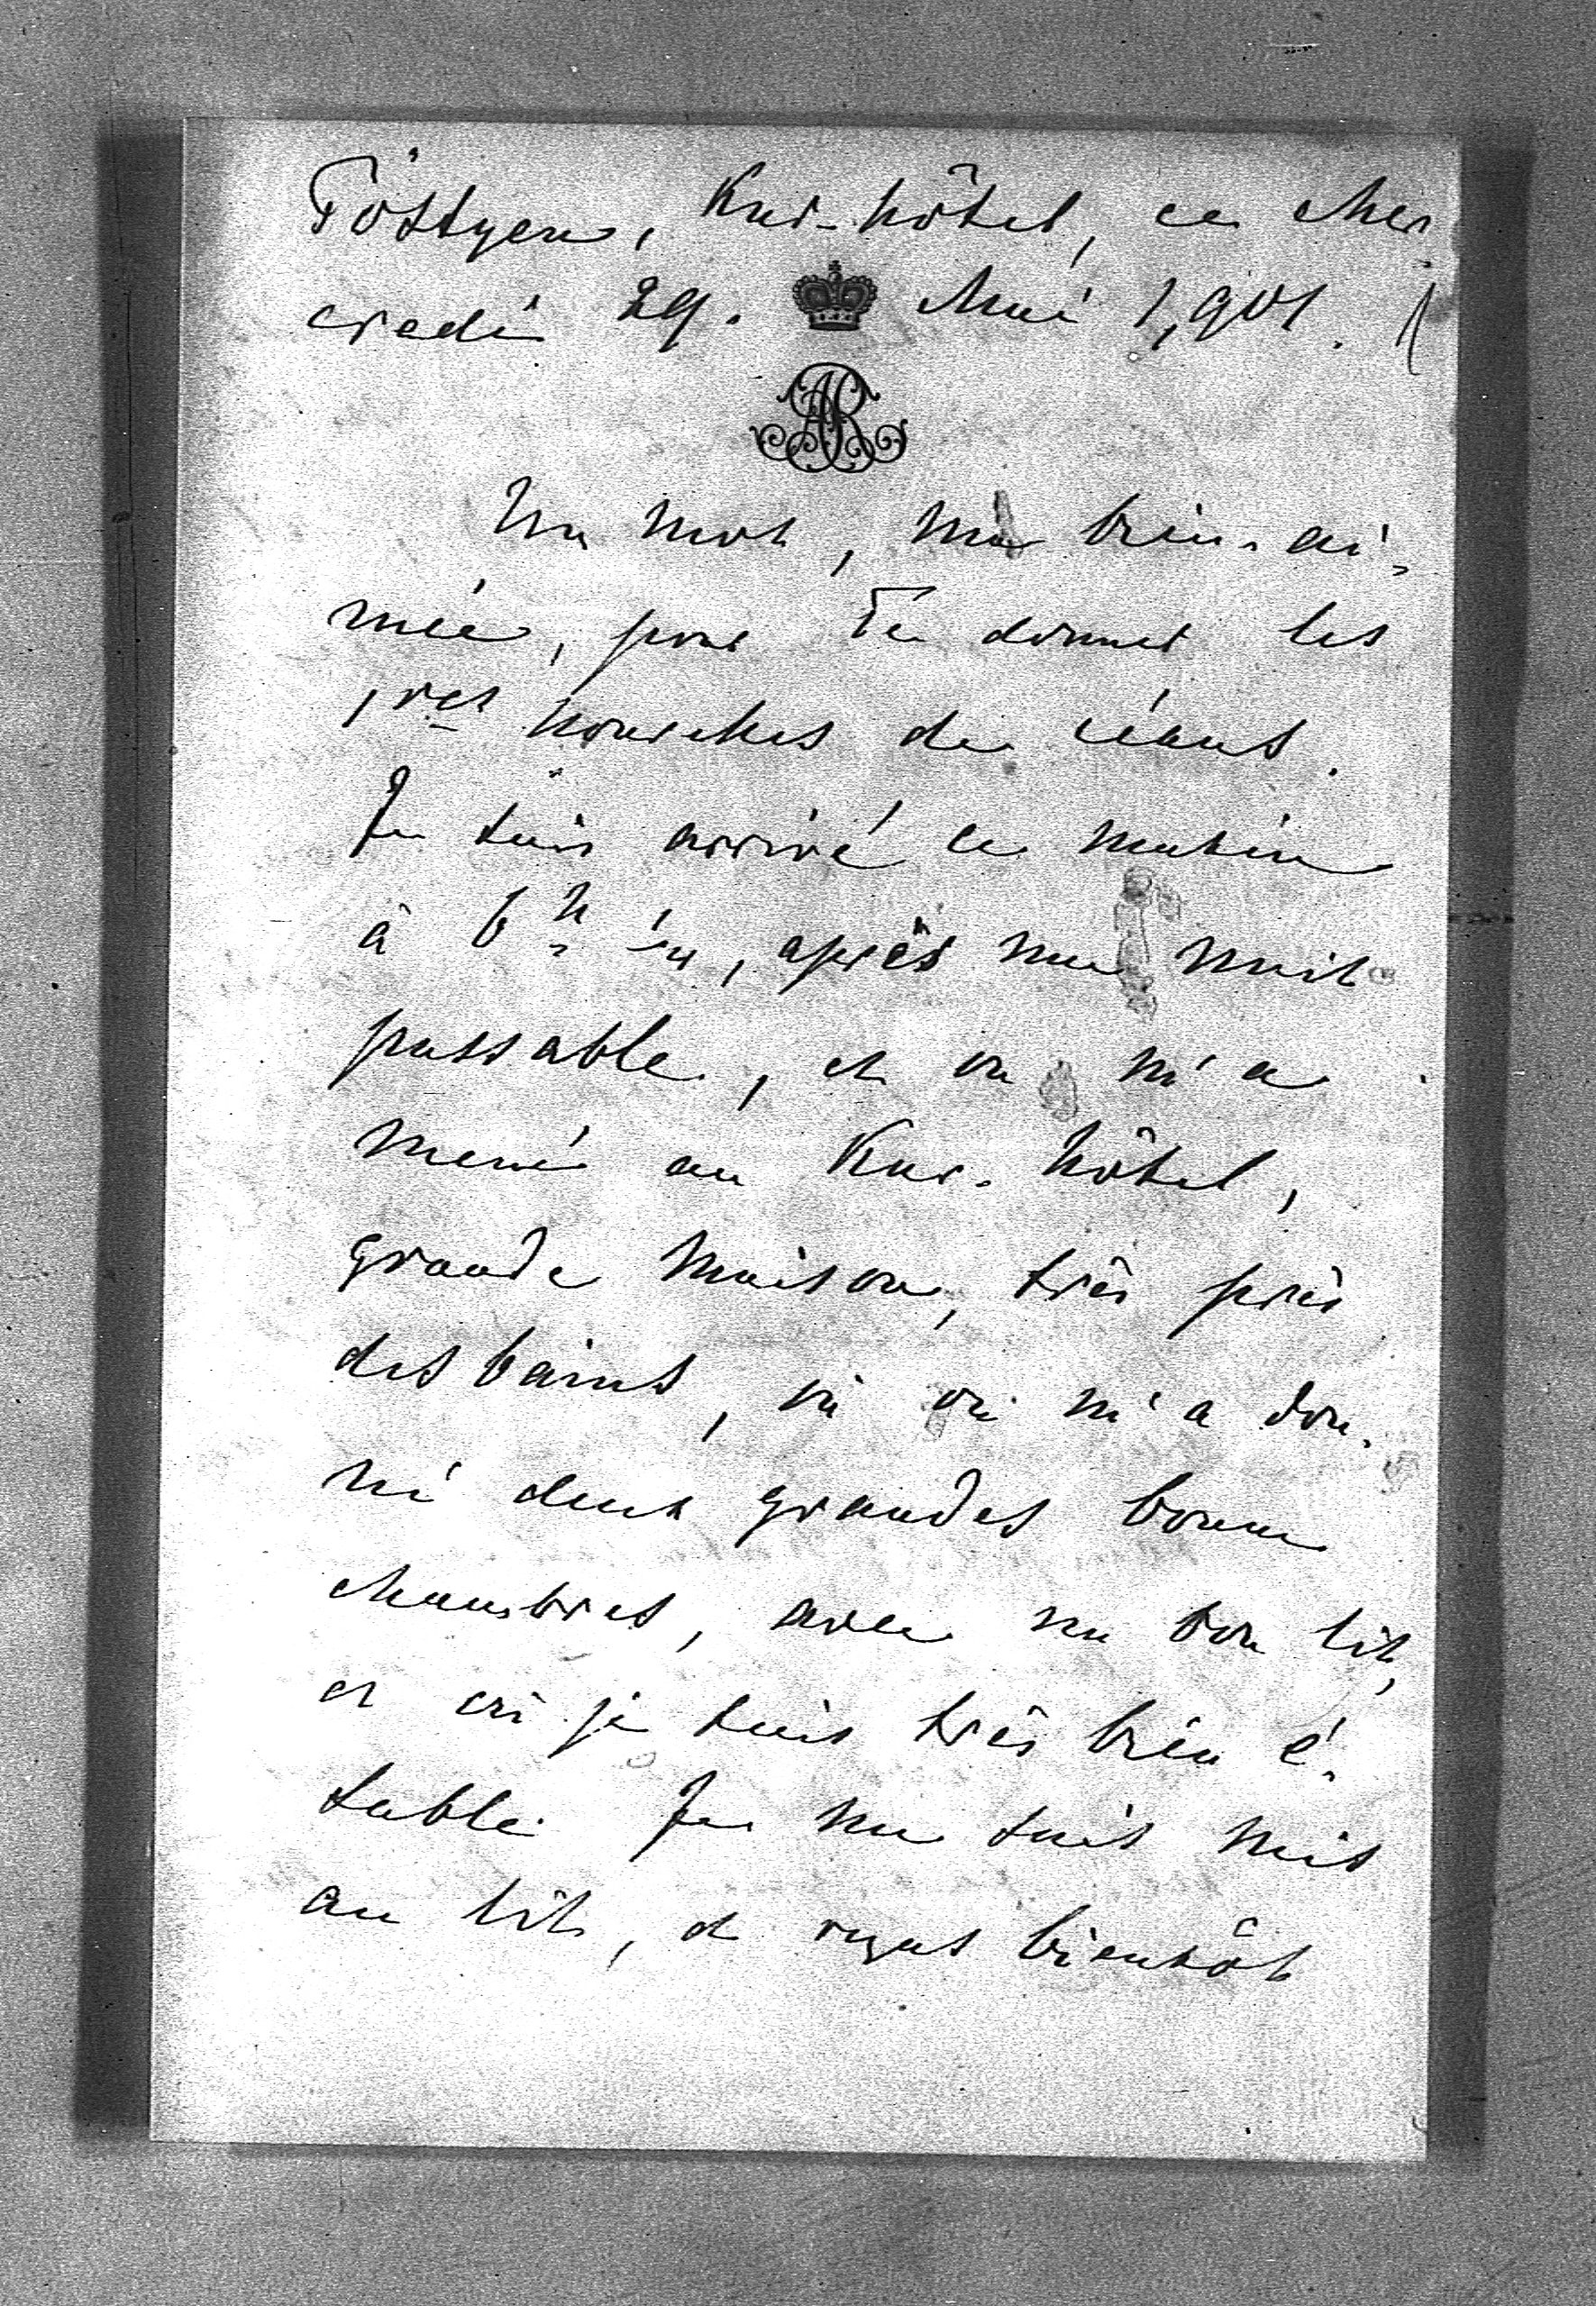 Pöstyen, Kur-hôtel, ce Mer
credi 29. Mai 1,901.
AR
Un mot, ma bien-ai-
mée, pour Te donner les
1res nouvelles de céans.
Je suis arrivé ce matin
à 6h 1/4, après une nuit
passable, et on m'a
mené au Kur-hôtel,
grande maison, très près
des bains, où on m'a don-
né deux grandes bonnes
chambres, avec un bon lit,
et où je suis très bien é-
tabli. Je me suis mis
au lit, et reçus bientôt